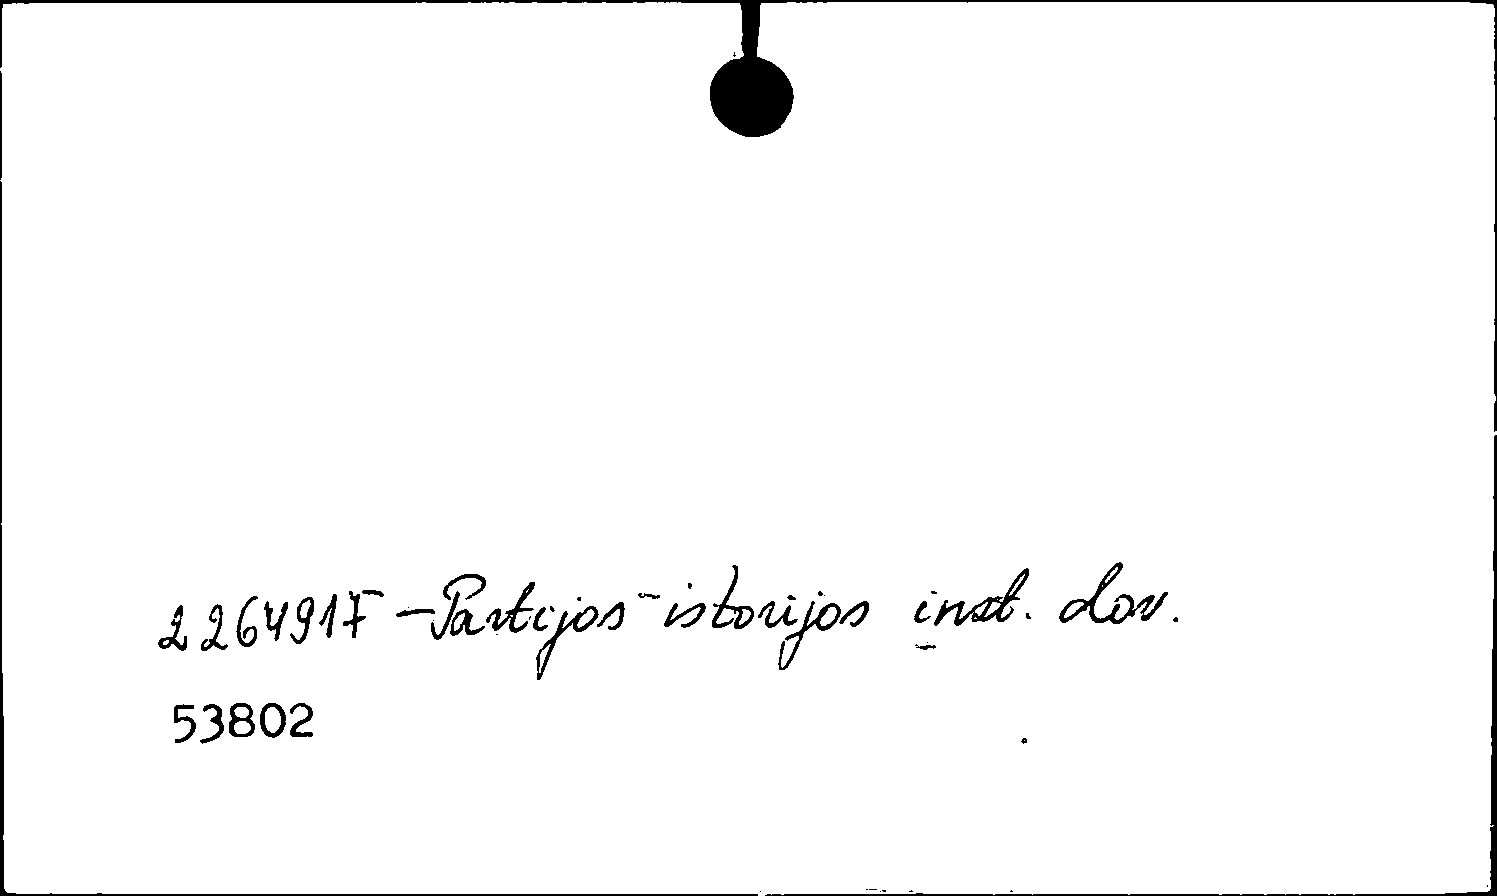 2264917 - Partijos istorijos inst. dov.
53802